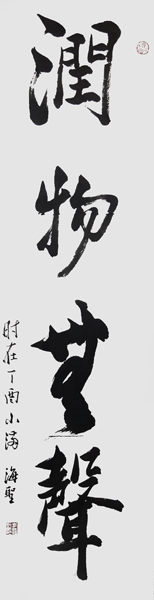 潤物無聲
时在丁酉小满 海聖